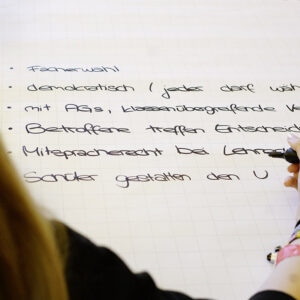 • Fächerwahl
• demokratisch (jeder darf wäh
• mit AGs, klassenübegreifende V
• Betroffene treffen Entscheid
• Mitspracherecht bei Lehre
Schüler gestalten den U